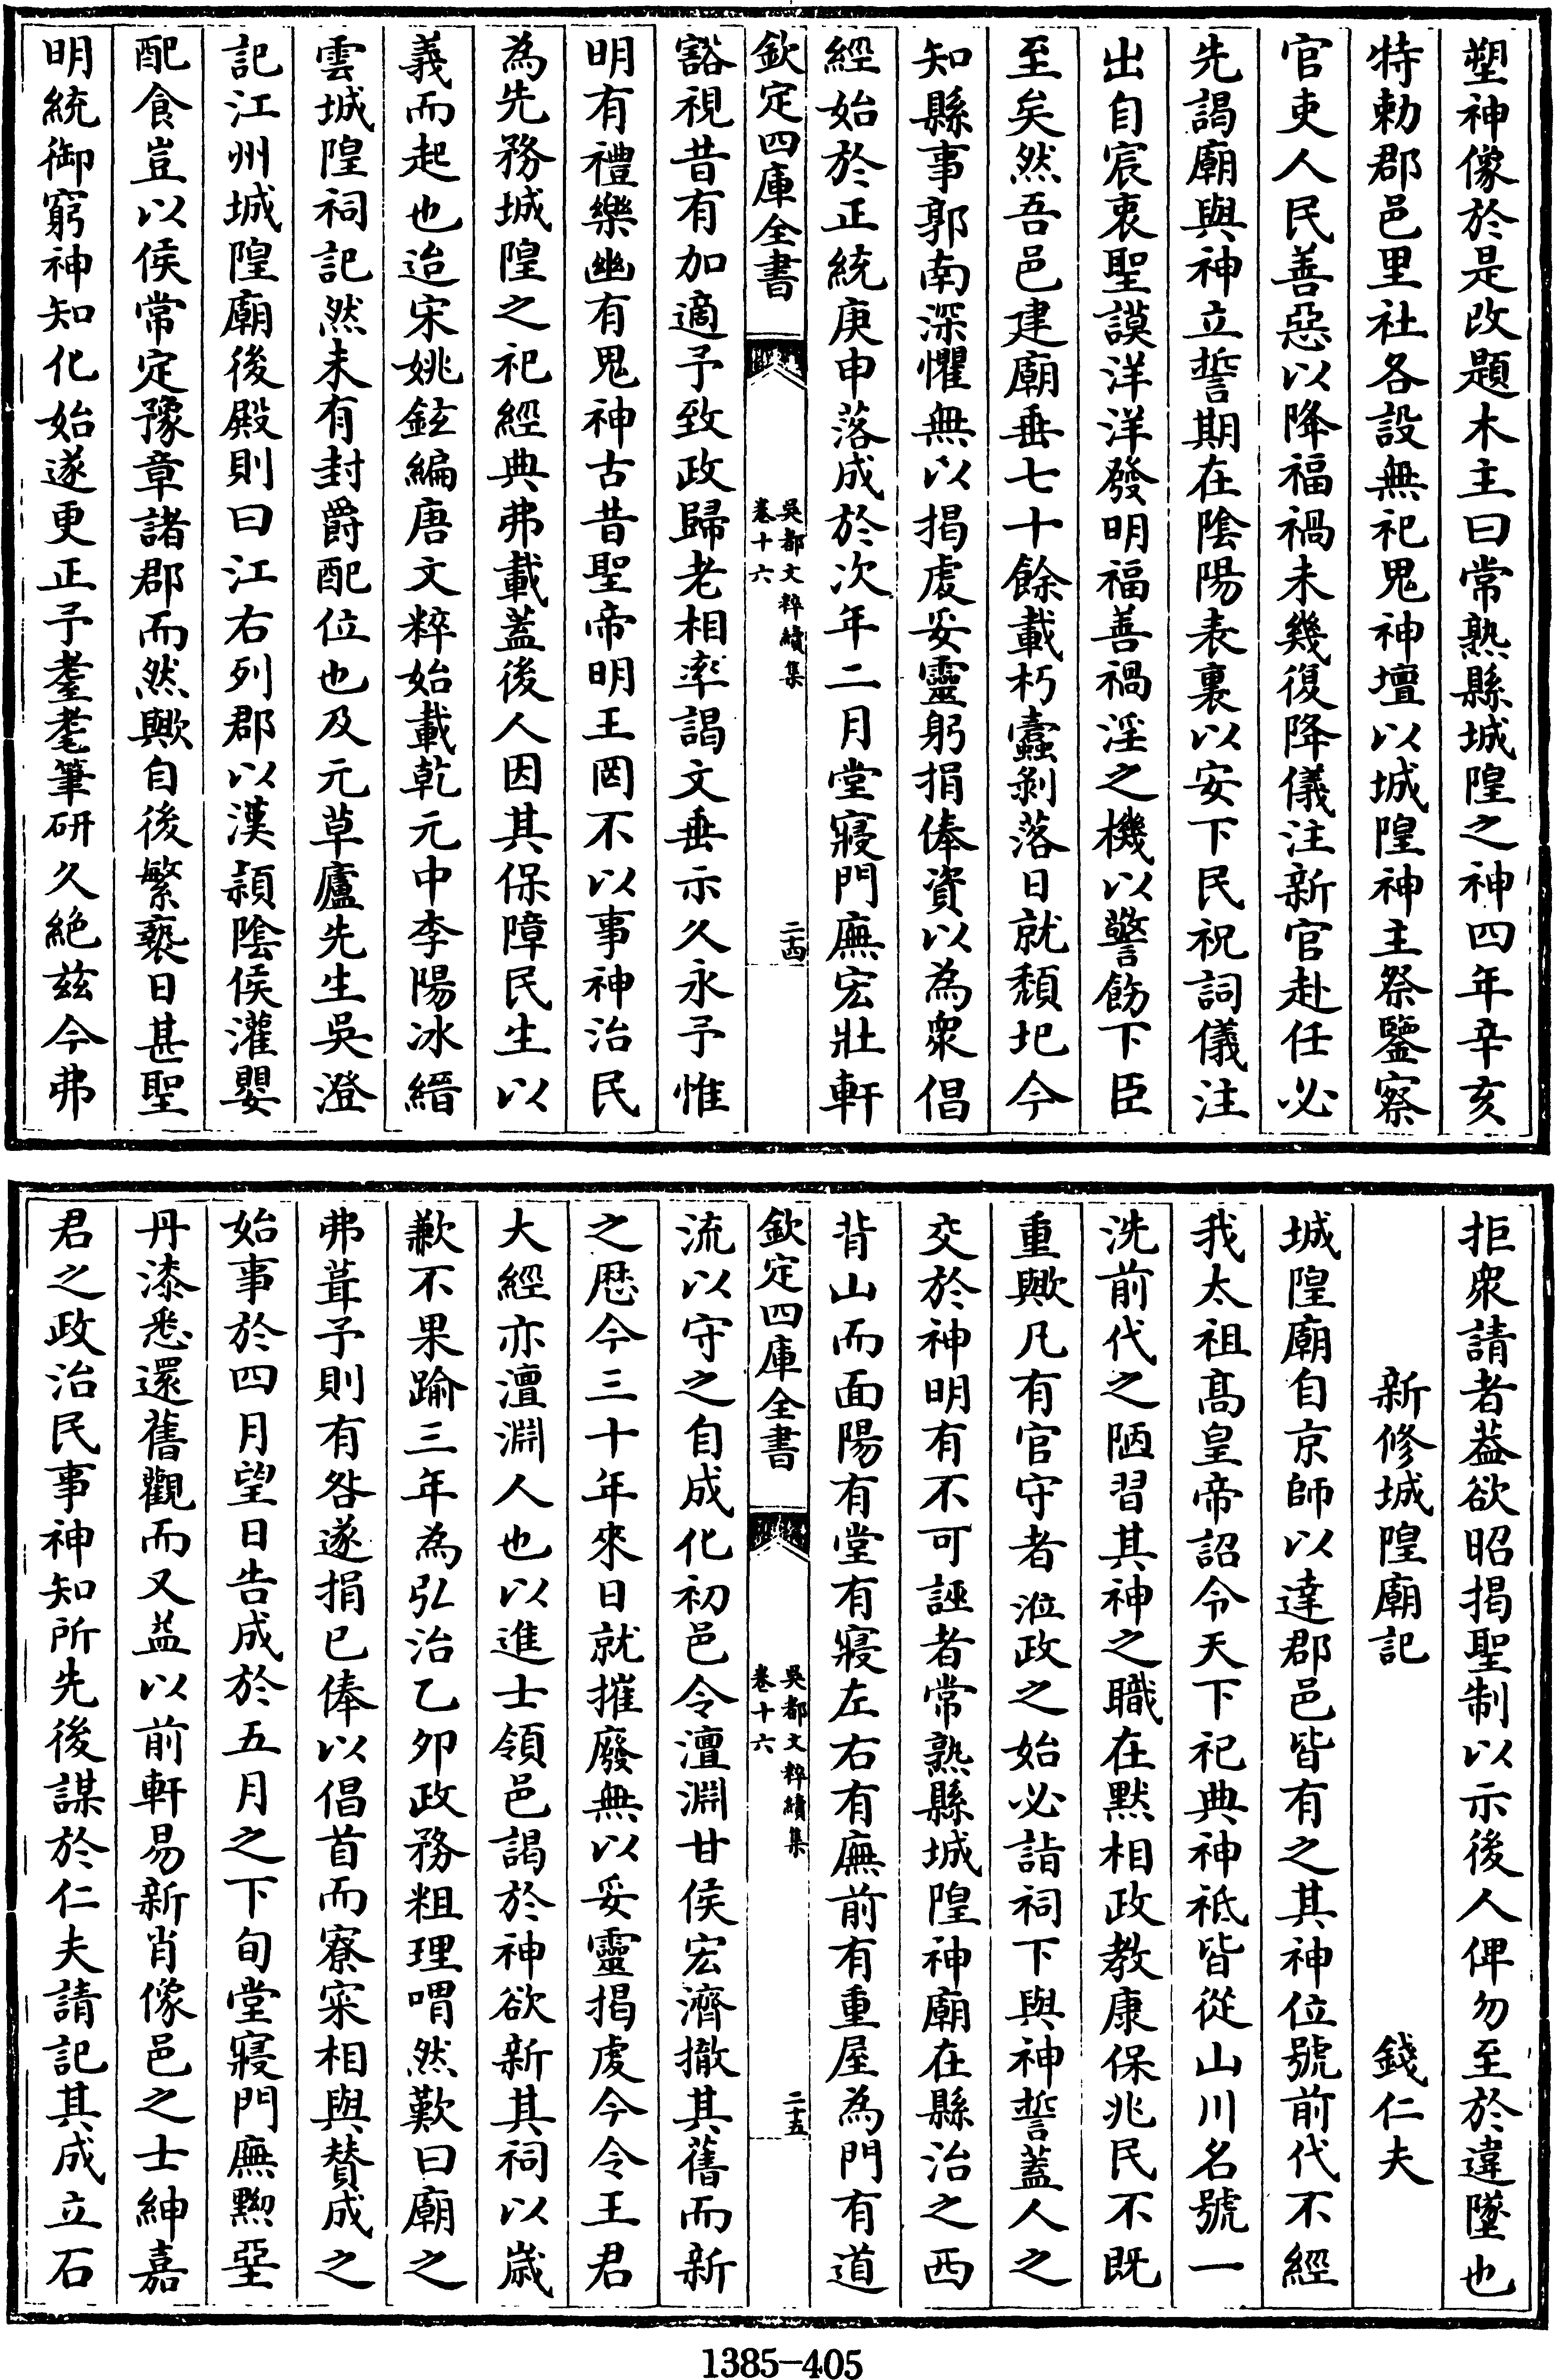 塑神像於是改題木主曰常熟縣城隍之神四年辛亥
特勅郡邑里社各設無祀鬼神壇以城隍神主祭鑒察
官吏人民善惡以降福禍未幾復降儀注新官赴任必
先謁廟與神立誓期在陰陽表裏以安下民祝詞儀注
出自宸衷聖謨洋洋發明福善禍淫之機以警飭下臣
至矣然吾邑建廟垂七十餘載朽蠹剝落日就頹圮今
知縣事郭南深懼無以揭虔妥靈躬捐俸資以為衆倡
經始於正統庚申落成於次年二月堂寢門廡宏壯軒
欽定四庫全書
吳都文粹續集
卷十六
二十四
豁視昔有加適予致政歸老相率謁文垂示久永予惟
明有禮樂幽有鬼神古昔聖帝明王罔不以事神治民
為先務城隍之祀經典弗載蓋後人因其保障民生以
義而起也迨宋姚鉉編唐文粹始載乾元中李陽冰縉
雲城隍祠記然未有封爵配位也及元草廬先生吳澄
記江州城隍廟後殿則曰江右列郡以漢潁陰侯灌嬰
配食豈以侯常定豫章諸郡而然歟自後繁褻日甚聖
明統御窮神知化始遂更正予耋耄筆研久絶兹今弗
拒衆請者葢欲昭揭聖制以示後人俾勿至於違墜也
新修城隍廟記　錢仁夫
城隍廟自京師以達郡邑皆有之其神位號前代不經
我太祖髙皇帝詔令天下祀典神祇皆從山川名號一
洗前代之陋習其神之職在默相政教康保兆民不既
重歟凡有官守者涖政之始必詣祠下與神誓蓋人之
交於神明有不可誣者常熟縣城隍神廟在縣治之西
背山而面陽有堂有寢左右有廡前有重屋為門有道
欽定四庫全書
吳都文粹續集
卷十六
二十五
流以守之自成化初邑令澶淵甘侯宏濟撤其舊而新
之厯今三十年來日就摧廢無以妥靈揭虔今令王君
大經亦澶淵人也以進士領邑謁於神欲新其祠以嵗
歉不果踰三年為弘治乙夘政務粗理喟然歎曰廟之
弗葺予則有咎遂捐已俸以倡首而寮寀相與賛成之
始事於四月望日告成於五月之下旬堂寢門廡黝堊
丹漆悉還舊觀而又益以前軒易新肖像邑之士紳嘉
君之政治民事神知所先後謀於仁夫請記其成立石
1385-405